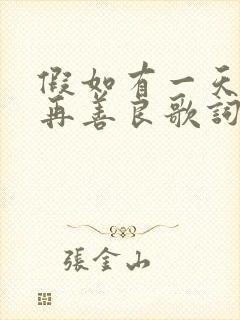 假如有一天
再善良歌詞
張金山